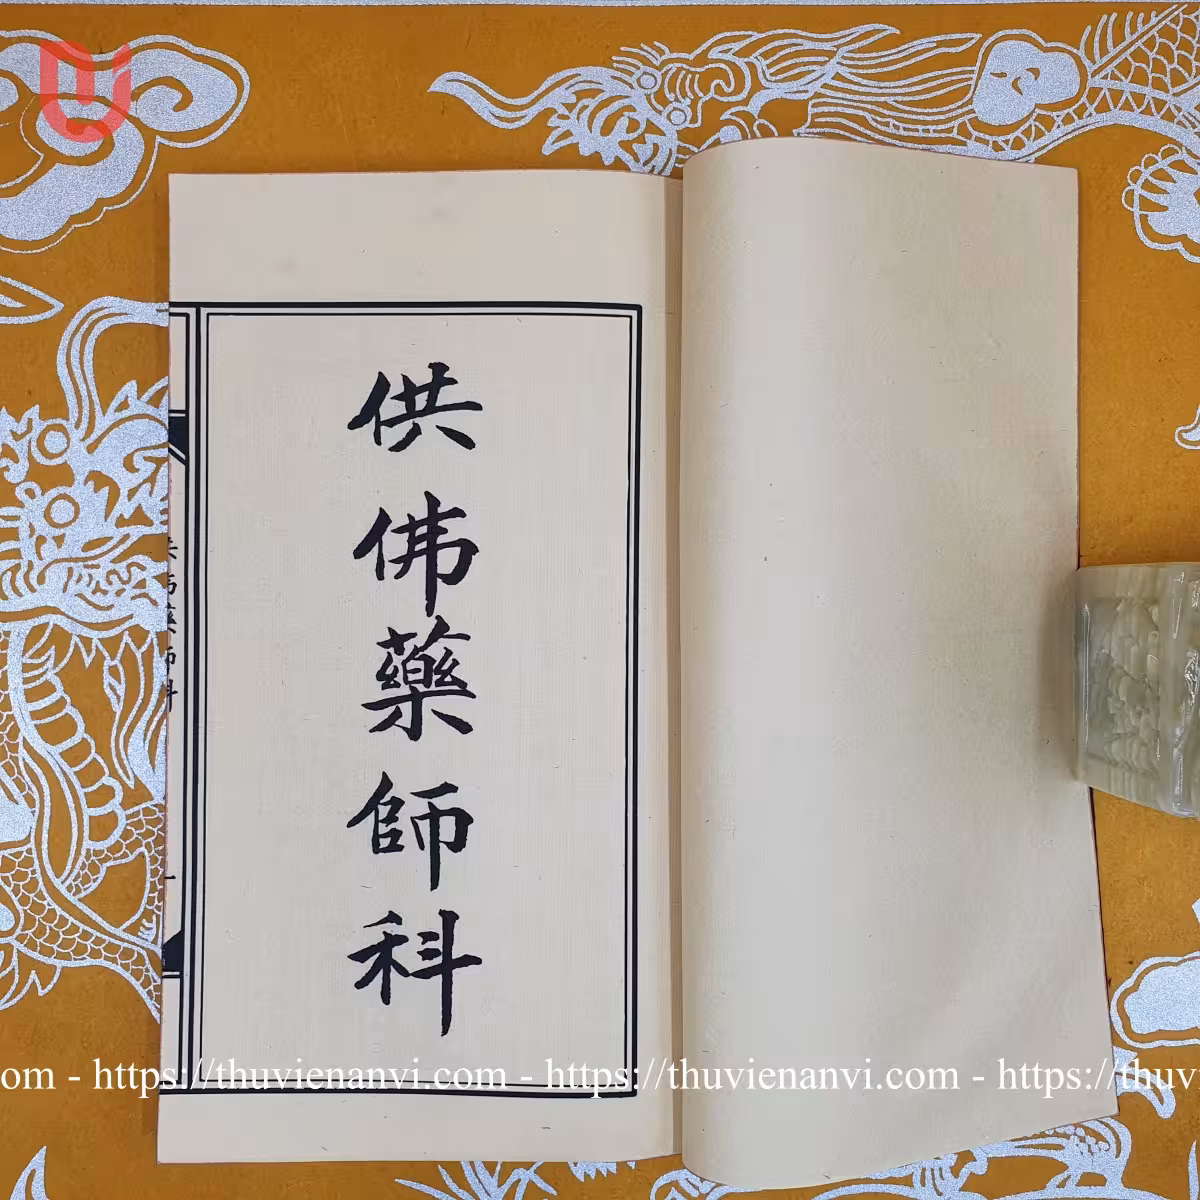 供佛藥師科
供佛藥師科
om - https://thuvienanvi.com - https://thuvienanvi.com - https://thuv